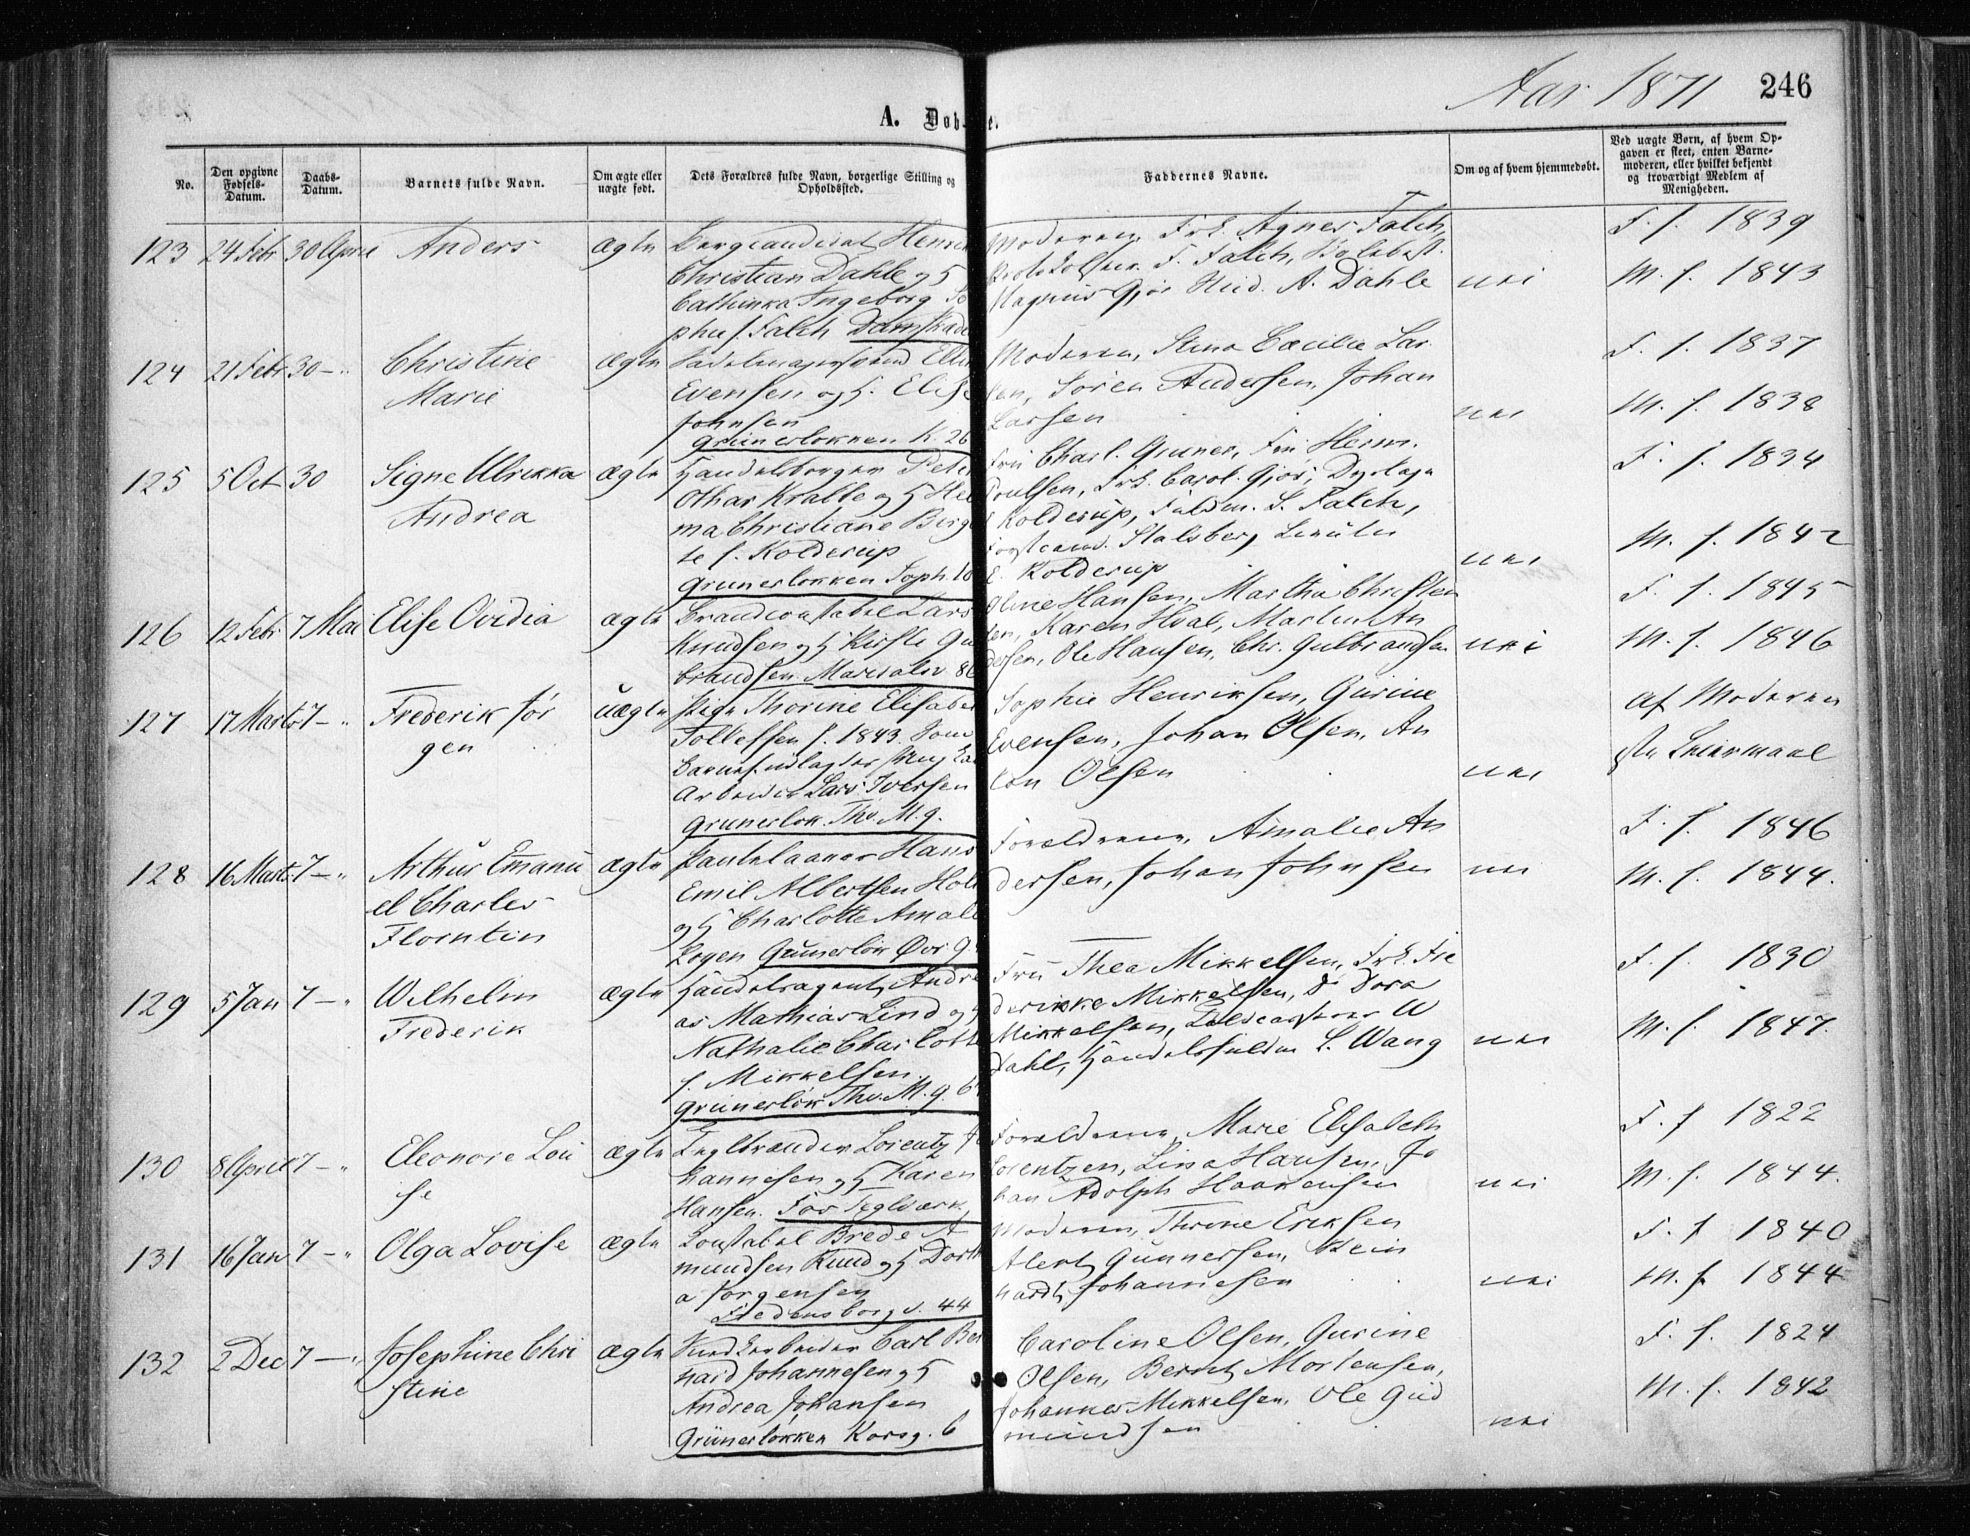 Aar 1871
246
A. Døb
e.
No.
Den opgivne Fødsels-Datum.
Daabs-Datum.
Barnets fulde Navn.
Om ægte eller uægte født.
Dets Forældres fulde Navn, borgerlige Stilling og Opholdssted.
Faddernes Navne.
Om og af hvem hjemmedøbt.
Ved uægte Børn, af hvem Opgaven er skeet, enten Barnemoderen, eller hvilket bekjendt og troværdigt Medlem af Menigheden.
123 24 Febr 30 April Anders ægte
Bergcandidat Henrik
Christian Dahle og H
Cathinka Ingeborg So
phie f. Falch
Moderen, Frk. Agnes Falch,
F. Falch,
Magnus Gjør A. Dahle
nei
F. f. 1839
M. f. 1843
124 21 Febr 30 — " Christine
Marie
ægte
Sadelmagersvend
Evensen og H. Elise
Johnsen
Grünerløkken K. 26
Moderen, Stina Cæcilie Lar
sen, Søren Andersen, Johan
Larsen
nei
F. f. 1837
M. f. 1838
125 5 Oct 30 Signe Ulrikka
Andrea
ægte
Handelsborger Peter
Othar Krabbe og H Hel
ma Christiane Birgit
te f. Kolderup
Grünerløkken Soph. 10
Fru Charl. Gruner, Fru Herm.
Poulsen, Frk. Carol. Gjør,
Kolderup, Fuldm. S. Falch,
Stalsberg
E. Kolderup
nei
F. f. 1834
M. f. 1842
126 12 Febr 7 Mai Elise Ovidia
ægte
Brandconstabel Lars
Knudsen og H Kirstie Gul
brandsen. Maridalsv 86
Oline Hansen, Martha Christen
sen, Karen Hval, Martin An
dersen, Ole Hansen, Chr. Gulbrandsen
nei
F. f. 1845
M. f. 1846
127 17 Marts 7 — " Frederik Jør
gen
uægte
Pige Thorine Elisabet
Tollefsen f. 1843. Som
Barnefader udlagdes
Arbeider Lars Iversen
Grünerløk. Thv. M. g.
Sophie Henriksen, Gurine
Evensen, Johan Olsen, An
ton Olsen
nei
Af Moderen
128 16 Marts 7 — " Arthur Emanu
el Charles
Florntin
ægte
Pantelaaner Hans
Emil Albertsen Holm
og H Charlotte Amalie
Logen Grünerløk Øvr. G.
Forældrene, Amalie An
dersen, Johan Johnsen
nei
F. f. 1846
M. f. 1844.
129 5 Jan 7 — " Wilhelm
Frederik
ægte
Handelsagent Andre
as Mathias Lind og H
Nathalie Charlotte
f. Mikkelsen.
Grünerløk Thv. M. g. 6
Fru Thea Mikkelsen, Frk. Fre
derikke Mikkelsen, D° Dora
Mikkelsen, Toldcasserer W
Dahl, Handelsfuldm L. Wang
nei
F. f. 1830
M. f. 1847.
130 8 April 7 — " Eleonore Loui
se
ægte
Teglbrænder Lorentz Jo
hannesen og H Karen
Hansen. Fos Teglværk
Forældrene, Marie Elisabeth
Lorentzen, Lina Hansen, Jo
han Adolph Haakensen
nei
F. f. 1822
M. f. 1844.
131 16 Jan 7 — " Olga Lovise
ægte
Constabel Brede A
mundsen Ruud og H Dorth
a Jørgensen
Fredensborg v. 44
Moderen, Thrine Eriksen
Alert Gunnersen, Rein
hardt Johannesen
nei
F. f. 1840
M. f. 1844
132 2 Dec 7 — " Josephine Chri
stine
ægte
Carl Ber
nard Johannesen og H
Andrea Johansen
Grünerløkken Korsg. 6
Caroline Olsen, Gurine
Olsen, Bernt Mortensen,
Johannes Mikkelsen, Ole Gud
mundsen
nei
F. f. 1824
M. f. 1842